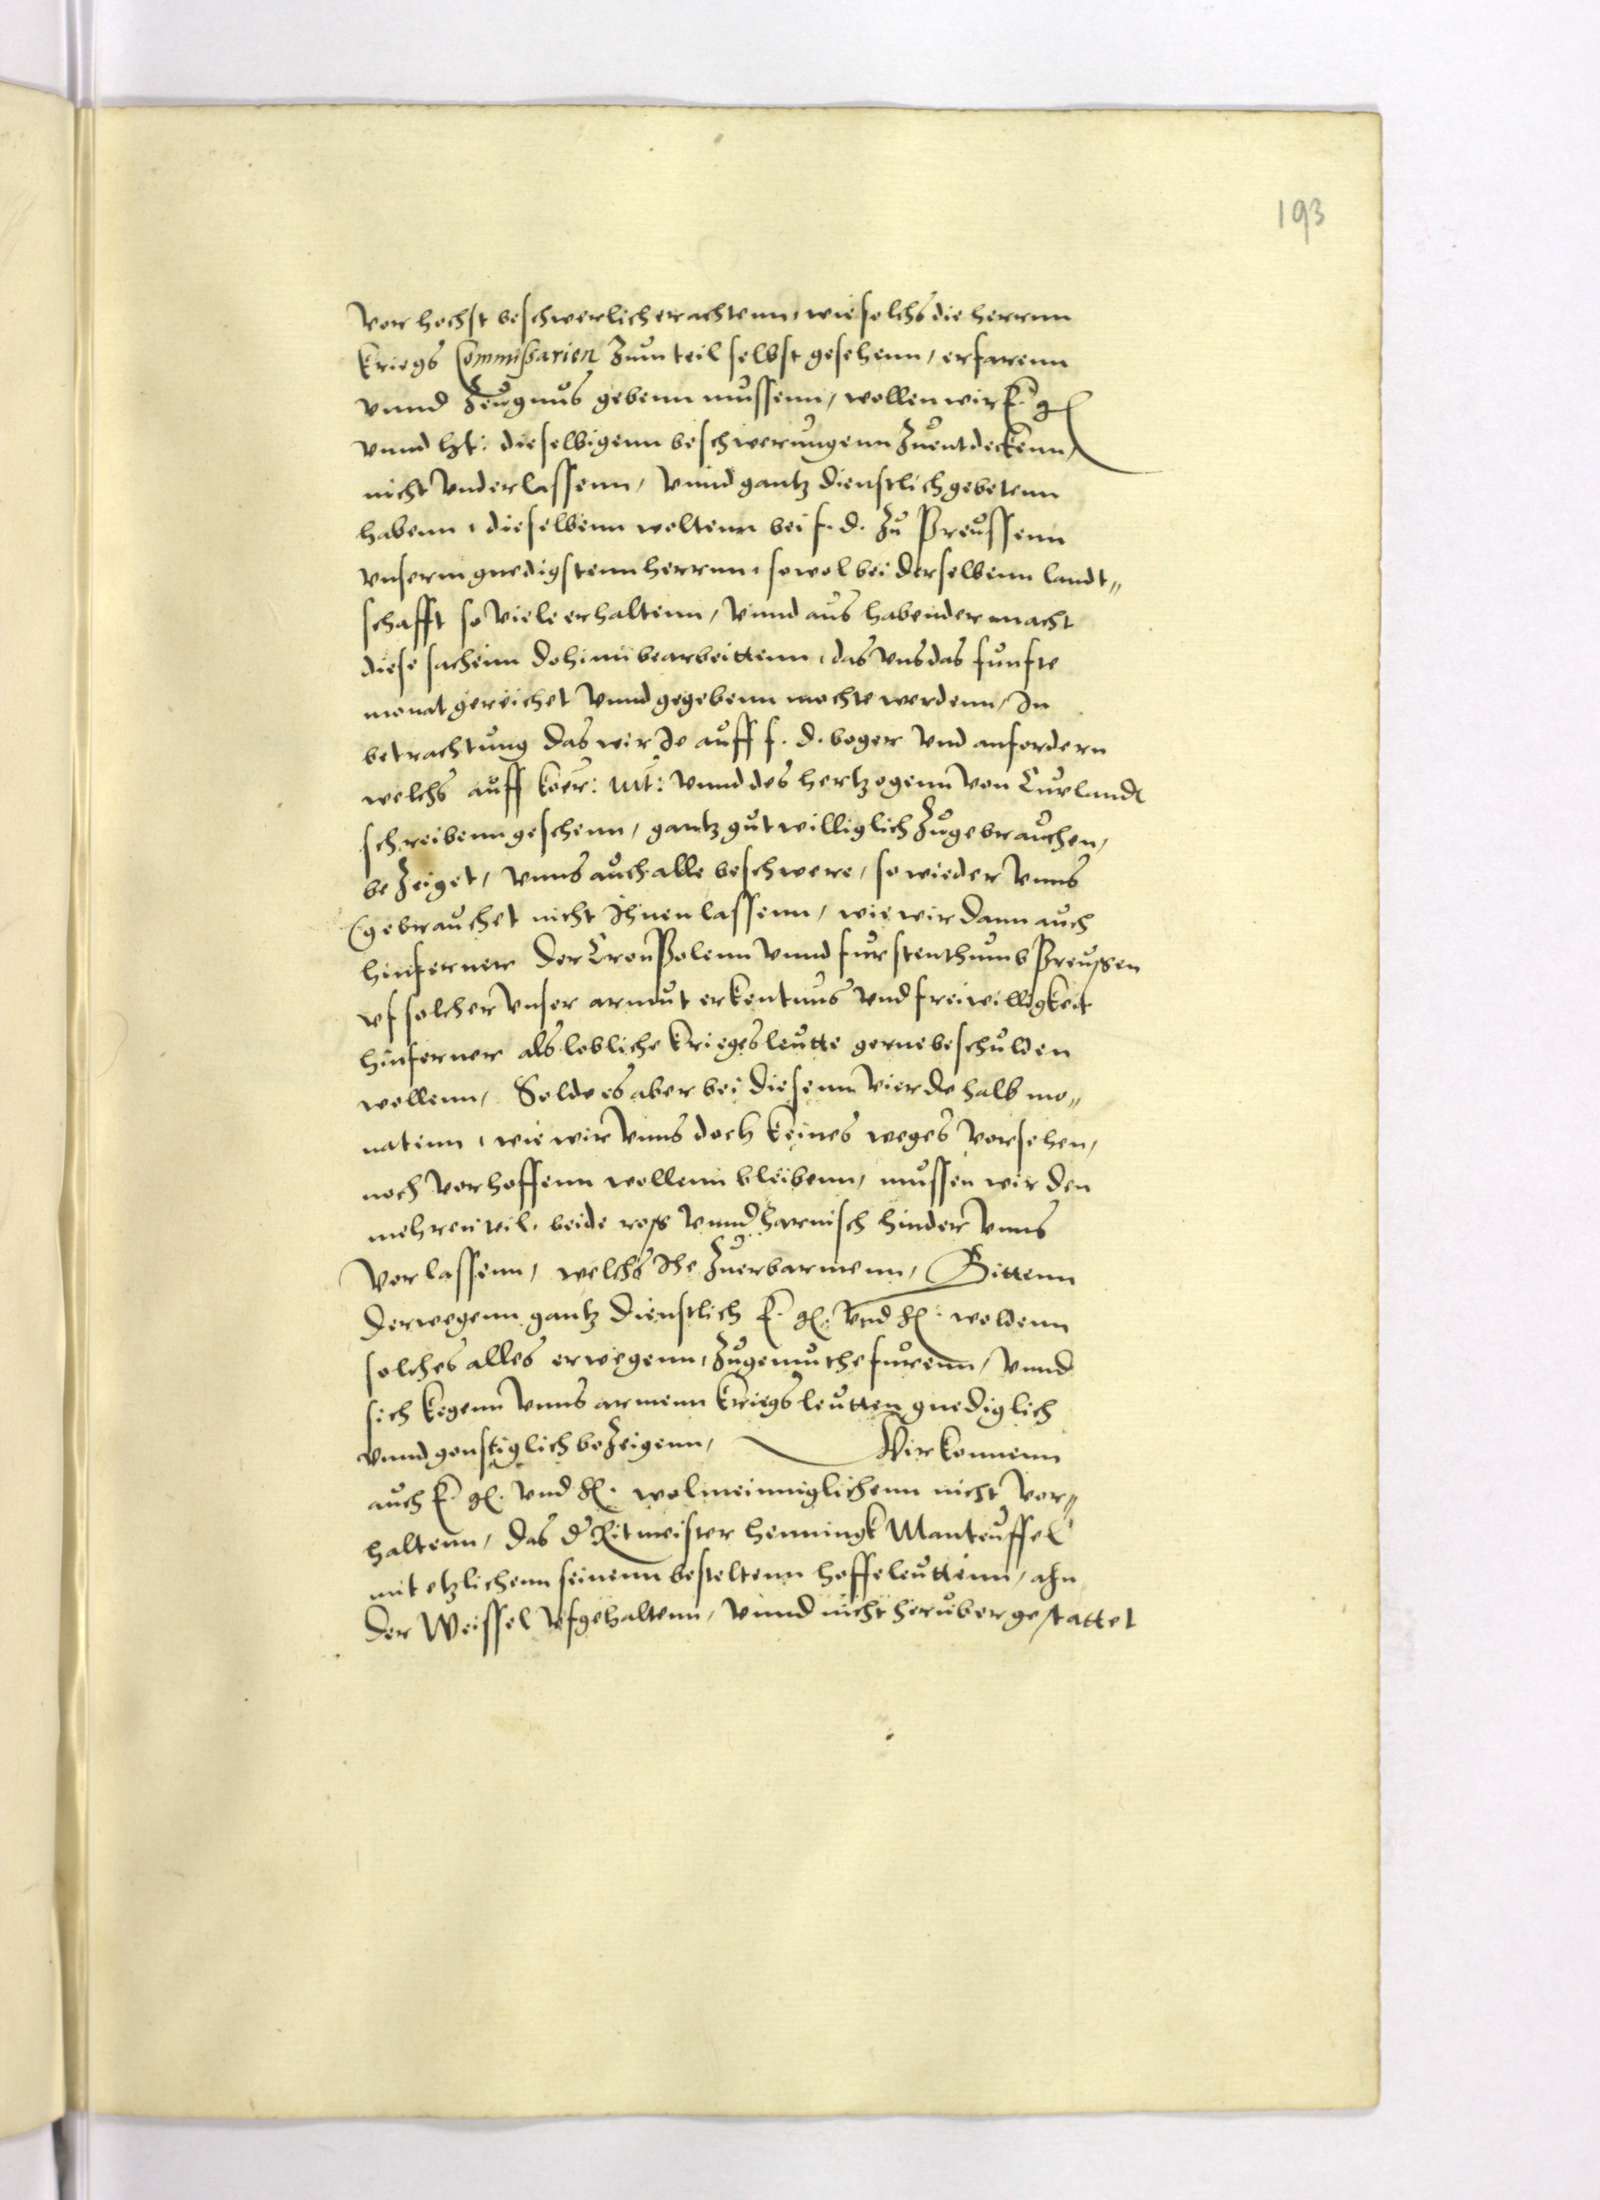 193
vor hochst beschwerlich erachtenn, wie solchs die herrnn
kriegs Commissarien zum teil selbst gesehenn, erfarenn
vnnd zeugnus gebenn mussenn, wollen wir E. g
vnnd ht: dieselbigenn beschwerungenn zuentdeckenn,
nicht vnderlassenn, vnnd gantz dienstlich gebetenn
habenn, dieselbenn woltenn bei f. d. zu Preussenn
vnserm gnedigstenn herrnn, sowol bei derselbenn landt„
schafft so viele erhaltenn, vnnd aus habender macht
diese sachenn dohinn bearbeittenn, das vns das funfte
monat gereichet vnnd gegebenn mochte werdenn, In
betrachtung das wir Je auff f. d. beger vnd anfordern
welchs auff koer: mt: vnnd des hertzogenn von Curlandt
schreibenn geschenn, gantz gutwilliglich zugebrauchen,
bezeiget, vnns auch alle beschwere, so wieder vnns
gebrauchet nicht Jhren lassenn, wie wir dann auch
hinferner der Cron Polenn vnnd furstenthumb Preussen
vf solcher vnser armut erkentnus vnd freiwilligkeit
hinferner als lobliche kriegesleutte gerne beschulden
wollenn, Solde es aber bei diesenn vierdehalb mo„
natenn, wie wir vnns doch keines weges vorsehen,
noch vorhoffenn wollenn bleibenn, mussen wir den
mehrenteil, beide ross vnnd harnisch hinder vnns
vorlassenn, welchs Jhe zuerbarmenn, Bittenn
derwegenn gantz dienstlich E. g. vnd h. woldenn
solches alles erwegenn, zugemuthe furenn, vnnd
sich kegenn vnns armenn kriegsleutten gnediglich
vnnd gonstiglich bezeigenn, Wir konnenn
auch E. g. vnd h. wolmeinniglichenn nicht vor„
haltenn, das d Ritmeister henningk Manteuffel
mit etzlichenn seinenn besteltenn hoffeleuttenn, ahn
der Weissel vfgehaltenn, vnnd nicht heruber gestattet